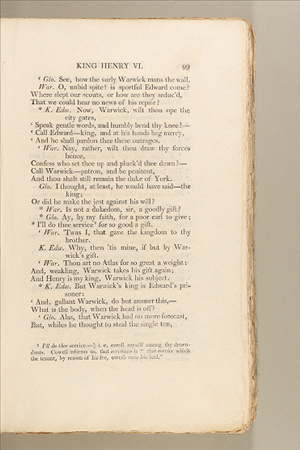 KING HENRY VI. 99
‘ Glo. See, how the surly Warwick mans the wall.
War. O, unbid spite! is sportful Edward come?
Where slept our scouts, or how are they seduc'd,
That we could hear no news of his repair?
* K. Edw. Now, Warwick, wilt thou ope the
city gates,
‘ Speak gentle words, and humbly bend thy knee?—
‘ Call Edward—king, and at his hands beg mercy,
‘ And he shall pardon thee these outrages.
‘ War. Nay, rather, wilt thou draw thy forces
hence,
Confess who set thee up and pluck'd thee down?—
Call Warwick—patron, and be penitent,
And thou shalt still remain the duke of York.
Glo. I thought, at least, he would have said—the
king;
Or did he make the jest against his will?
* War. Is not a dukedom, sir, a goodly gift?
* Glo. Ay, by my faith, for a poor earl to give;
* I'll do thee service for so good a gift.
‘ War. 'Twas I, that gave the kingdom to thy
brother.
K. Edw. Why, then 'tis mine, if but by War-
wick's gift.
‘ War. Thou art no Atlas for so great a weight:
And, weakling, Warwick takes his gift again;
And Henry is my king, Warwick his subject.
* K. Edw. But Warwick's king is Edward's pri-
soner:
‘ And, gallant Warwick, do but answer this,—
What is the body, when the head is off?
‘ Glo. Alas, that Warwick had no more forecast,
But, whiles he thought to steal the single ten,
I'll do thee service—] i. e. enroll myself among thy depen-
dants. Cowell informs us, that servitium is “ that service which
the tenant, by reason of his fee, oweth unto his lord.”